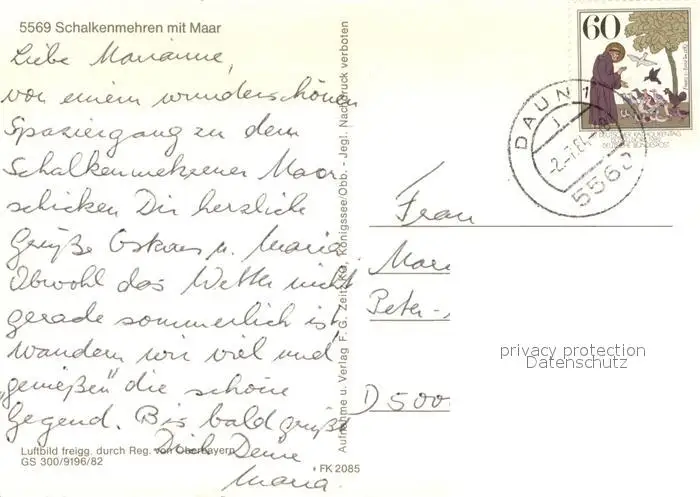 5569 Schalkenmehren mit Maar
Liebe Marianne,
von einem wunderschönen
Spaziergang zu dem
Schalkenmehrener Maar
schicken Dir herzliche
Grüße Oskar u. Maria.
Obwohl das Wetter nicht
gerade sommerlich ist,
wandern wir viel und
"genießen" die schöne
Gegend. Bis bald grüßt
Dich Deine
Maria.
Luftbild freigg. durch Reg. von Oberbayern
GS 300/9196/82
FK 2085
Aufnahme u. Verlag F. G. Zeitz KG, Königssee/Obb. - Jegl. Nachdruck verboten
60
DEUTSCHER KATHOLIKENTAG
DEUTSCHE BUNDESPOST
DAUN 1
5568
Frau
Mar
Peter-
D 500
privacy protection
Datenschutz